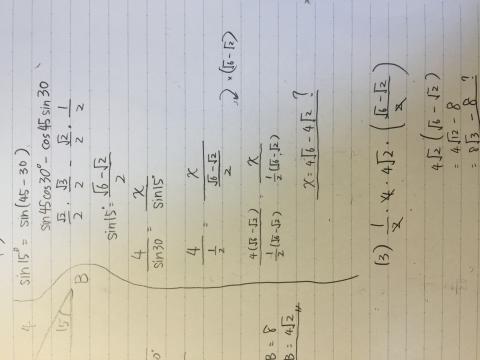 4
15°
B
sin15° = sin(45-30)
sin45cos30° - cos45sin30
√2/2 · √3/2 - √2/2 · 1/2
sin15° = (√6-√2)/2
4/sin30 = x/sin15°
4/(1/2) = x/((√6-√2)/2)
× (√6-√2)
4(√6-√2)/(1/2(√6-√2)) = x/(1/2(√6-√2))
x = 4√6 - 4√2 ?
B = 8
B = 4√2
(3) 1/2 · 4 · 4√2 · ((√6-√2)/2)
4√2 (√6 - √2)
= 4√12 - 8
= 8√3 - 8 ?